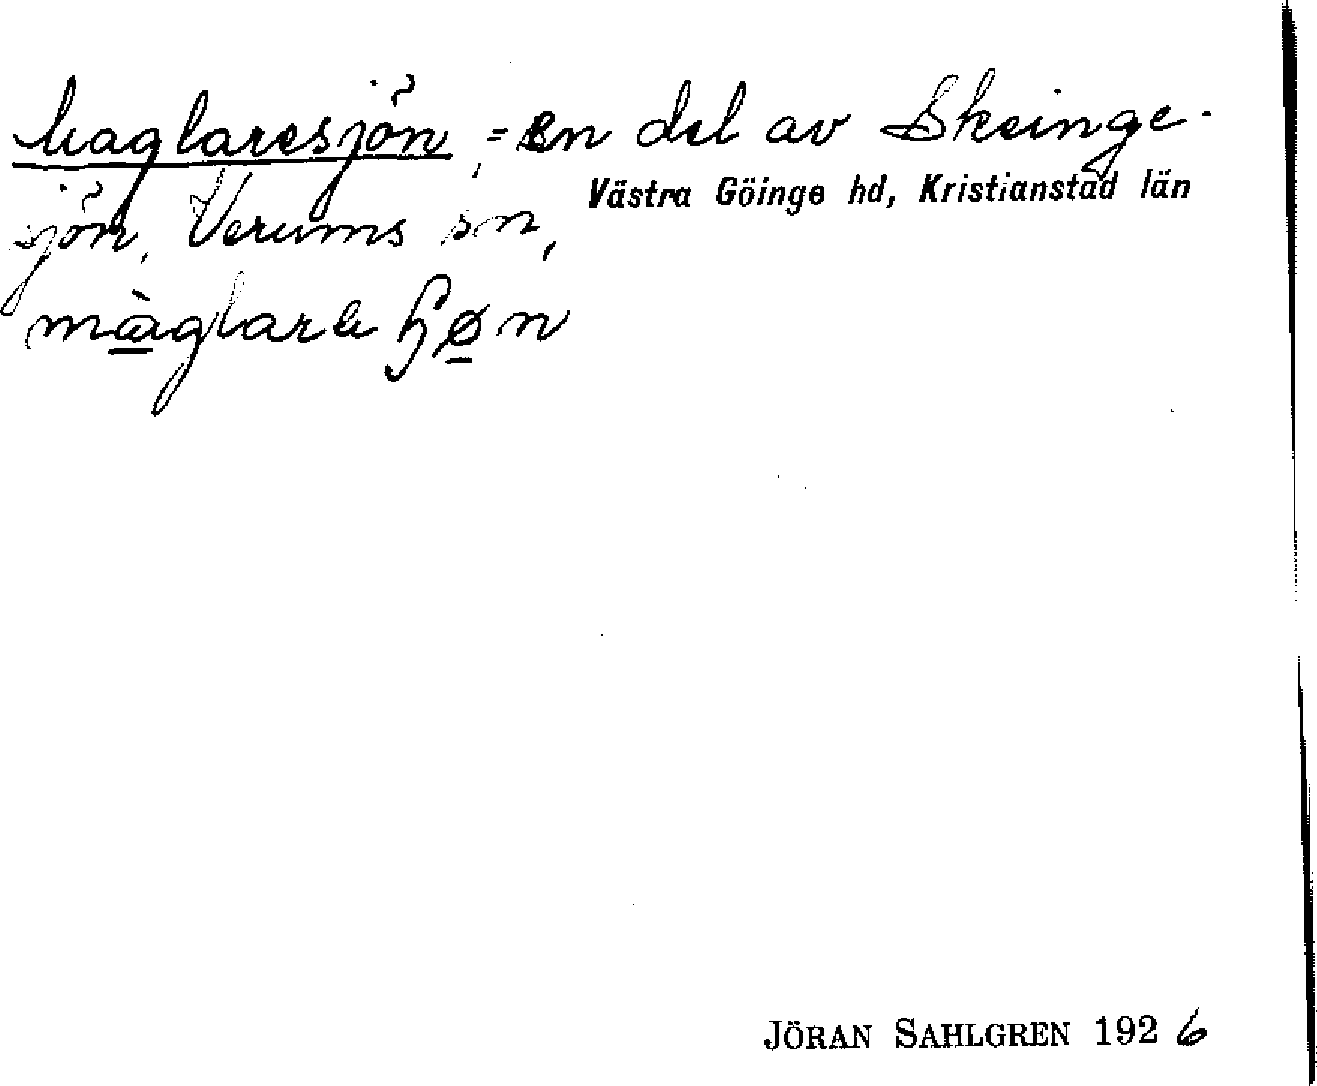 Maglaresjön, = en del av Skeinge-
sjön, Verums sn,
Västra Göinge hd, Kristianstad län
màglara ɧøn
JÖRAN SAHLGREN 1926